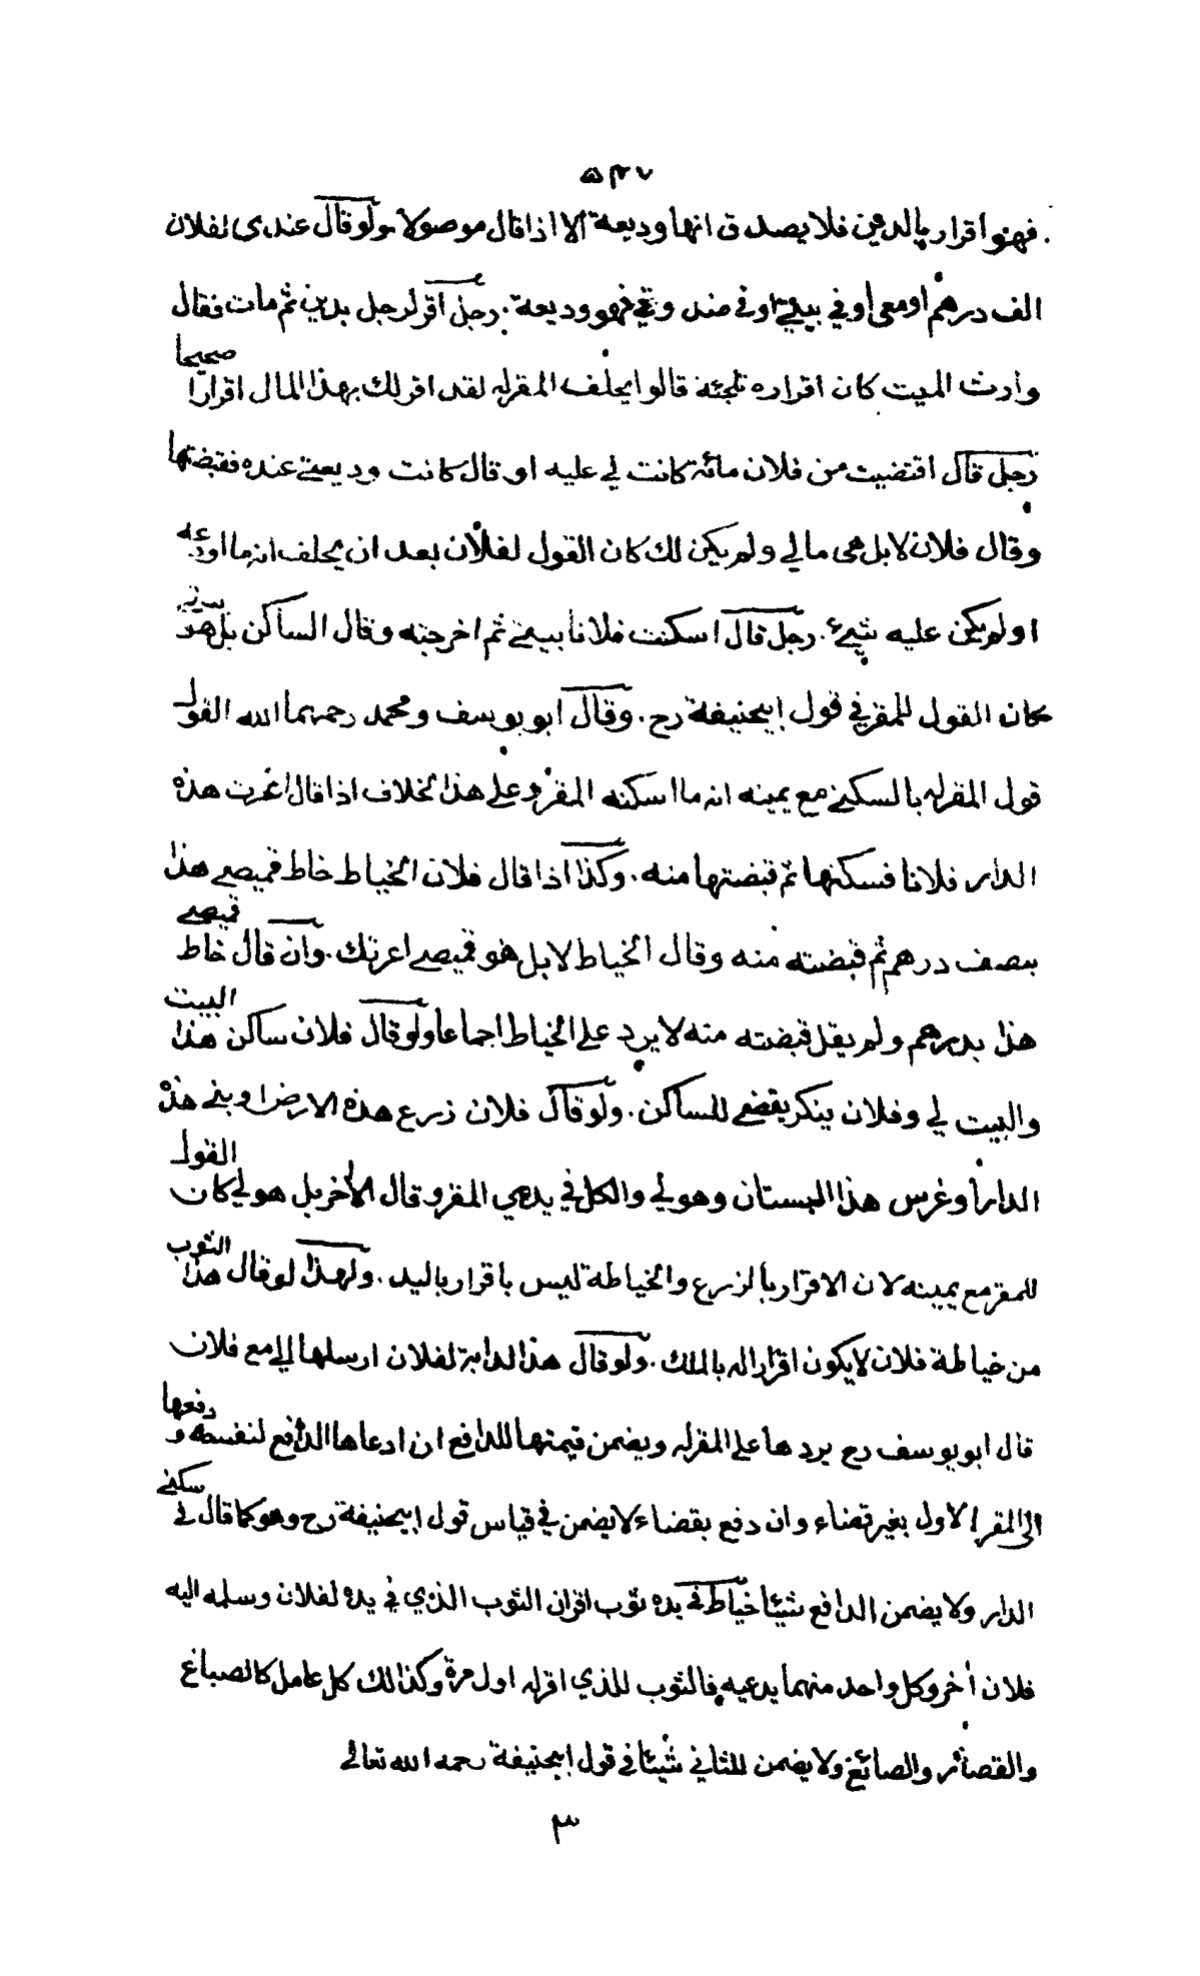 ٥٢٧
فهو اقرار بالدين فلا يصدق انها وديعة الا اذا قال موصولا ولو قال عندى لفلان
الف درهم او معى او في بيتي او في صندوقي فهو وديعة . رجل اقر لرجل بدين ثم مات فقال
وارث الميت كان اقراره تلجئة قالوا يحلف المقر له لقد اقر لك بهذا المال اقرارا صحيحا
رجل قال اقتضيت من فلان مائة كانت لي عليه او قال كانت وديعتي عنده فقبضتها
وقال فلان لا بل هى مالي ولم يكن لك كان القول لفلان بعد ان يحلف انه ما اودعه
او لم يكن عليه شيء . رجل قال اسكنت فلانا بيتي ثم اخرجته وقال الساكن بل هو بيته
كان القول للمقر في قول ابيحنيفة رح . وقال ابو يوسف ومحمد رحمهما الله القول
قول المقر له بالسكنى مع يمينه انه ما اسكنه المقر وعلى هذا الخلاف اذا قال اعرت هذه
الدار فلانا فسكنها ثم قبضتها منه . وكذا اذا قال فلان الخياط خاط قميصي هذا
بنصف درهم ثم قبضته منه وقال الخياط لا بل هو قميصي اعرتك . وان قال خاط قميصي
هذا بدرهم ولم يقل قبضته منه لا يرد على الخياط اجماعا ولو قال فلان ساكن هذا البيت
والبيت لي وفلان ينكر يقضى للساكن . ولو قال فلان زرع هذه الارض او بنى هذه
الدار او غرس هذا البستان وهو لي والكل في يدي المقر وقال الاخر بل هو لي كان القول
للمقر مع يمينه لان الاقرار بالزرع والخياطة ليس باقرار باليد . ولهذا لو قال هذا الثوب
من خياطة فلان لا يكون اقرارا له بالملك . ولو قال هذا الدابة لفلان ارسلها الي مع فلان
قال ابو يوسف رح يردها على المقر له ويضمن قيمتها للدافع ان ادعاها الدافع لنفسه و دفعها
الى المقر الاول بغير قضاء وان دفع بقضاء لا يضمن في قياس قول ابيحنيفة رح وهو كما قال في سكنى
الدار ولا يضمن الدافع شيئا خياط في يده ثوب اقر ان الثوب الذي في يده لفلان وسلمه اليه
فلان اخر وكل واحد منهما يدعيه فالثوب للذي اقر له اول مرة وكذالك كل عامل كالصباغ
والقصار والصائغ ولا يضمن للثاني شيئا في قول ابيحنيفة رحمه الله تعالى
٣